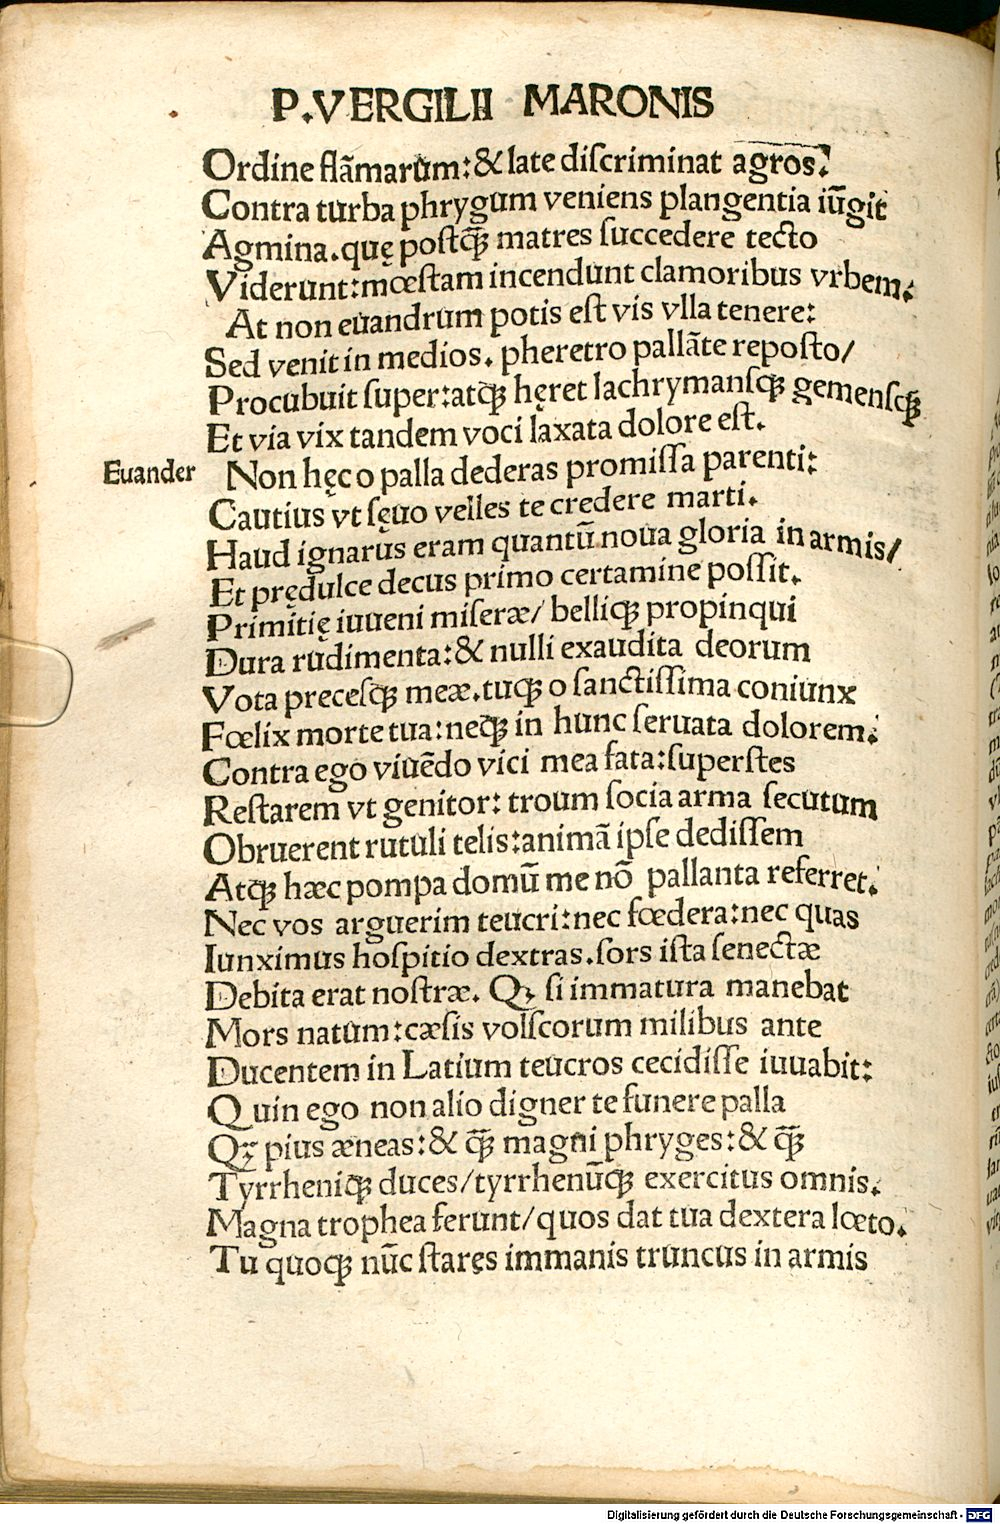 P.VERGILII MARONIS
Ordine flãmarum:& late diſcriminat agros.
Contra turba phrygum veniens plangentia iũgit
Agmina.quę poſtq̃ꝫ matres ſuccedere tecto
Viderunt:mœſtam incendunt clamoribus vrbem.
At non euandrum potis eſt vis vlla tenere:
Sed venit in medios. pheretro pallãte repoſto/
Procubuit ſuper:atqꝫ hęret lachrymanſqꝫ gemenſqꝫ
Et via vix tandem voci laxata dolore eſt.
Euander
Non hęc o palla dederas promiſſa parenti:
Cautius vt ſęuo velles te credere marti.
Haud ignarus eram quantũ noua gloria in armis/
Et prędulce decus primo certamine poſſit.
Primitię iuueni miſeræ/ belliqꝫ propinqui
Dura rudimenta:& nulli exaudita deorum
Vota preceſqꝫ meæ.tuqꝫ o ſanctiſſima coniunx
Fœlix morte tua:neqꝫ in hunc ſeruata dolorem.
Contra ego viuẽdo vici mea fata:ſuperſtes
Reſtarem vt genitor: troum ſocia arma ſecutum
Obruerent rutuli telis:animã ipſe dediſſem
Atqꝫ hæc pompa domũ me nõ pallanta referret.
Nec vos arguerim teucri:nec fœdera:nec quas
Iunximus hoſpitio dextras.ſors iſta ſenectæ
Debita erat noſtræ. Qꝫ ſi immatura manebat
Mors natum:cæſis volſcorum milibus ante
Ducentem in Latium teucros cecidiſſe iuuabit:
Quin ego non alio digner te funere palla
Qꝫ pius æneas:& q̃ꝫ magni phryges:& q̃ꝫ
Tyrrheniqꝫ duces/tyrrhenũqꝫ exercitus omnis.
Magna trophea ferunt/quos dat tua dextera lœto.
Tu quoqꝫ nũc ſtares immanis truncus in armis
Digitalisierung gefördert durch die Deutsche Forschungsgemeinschaft - DFG